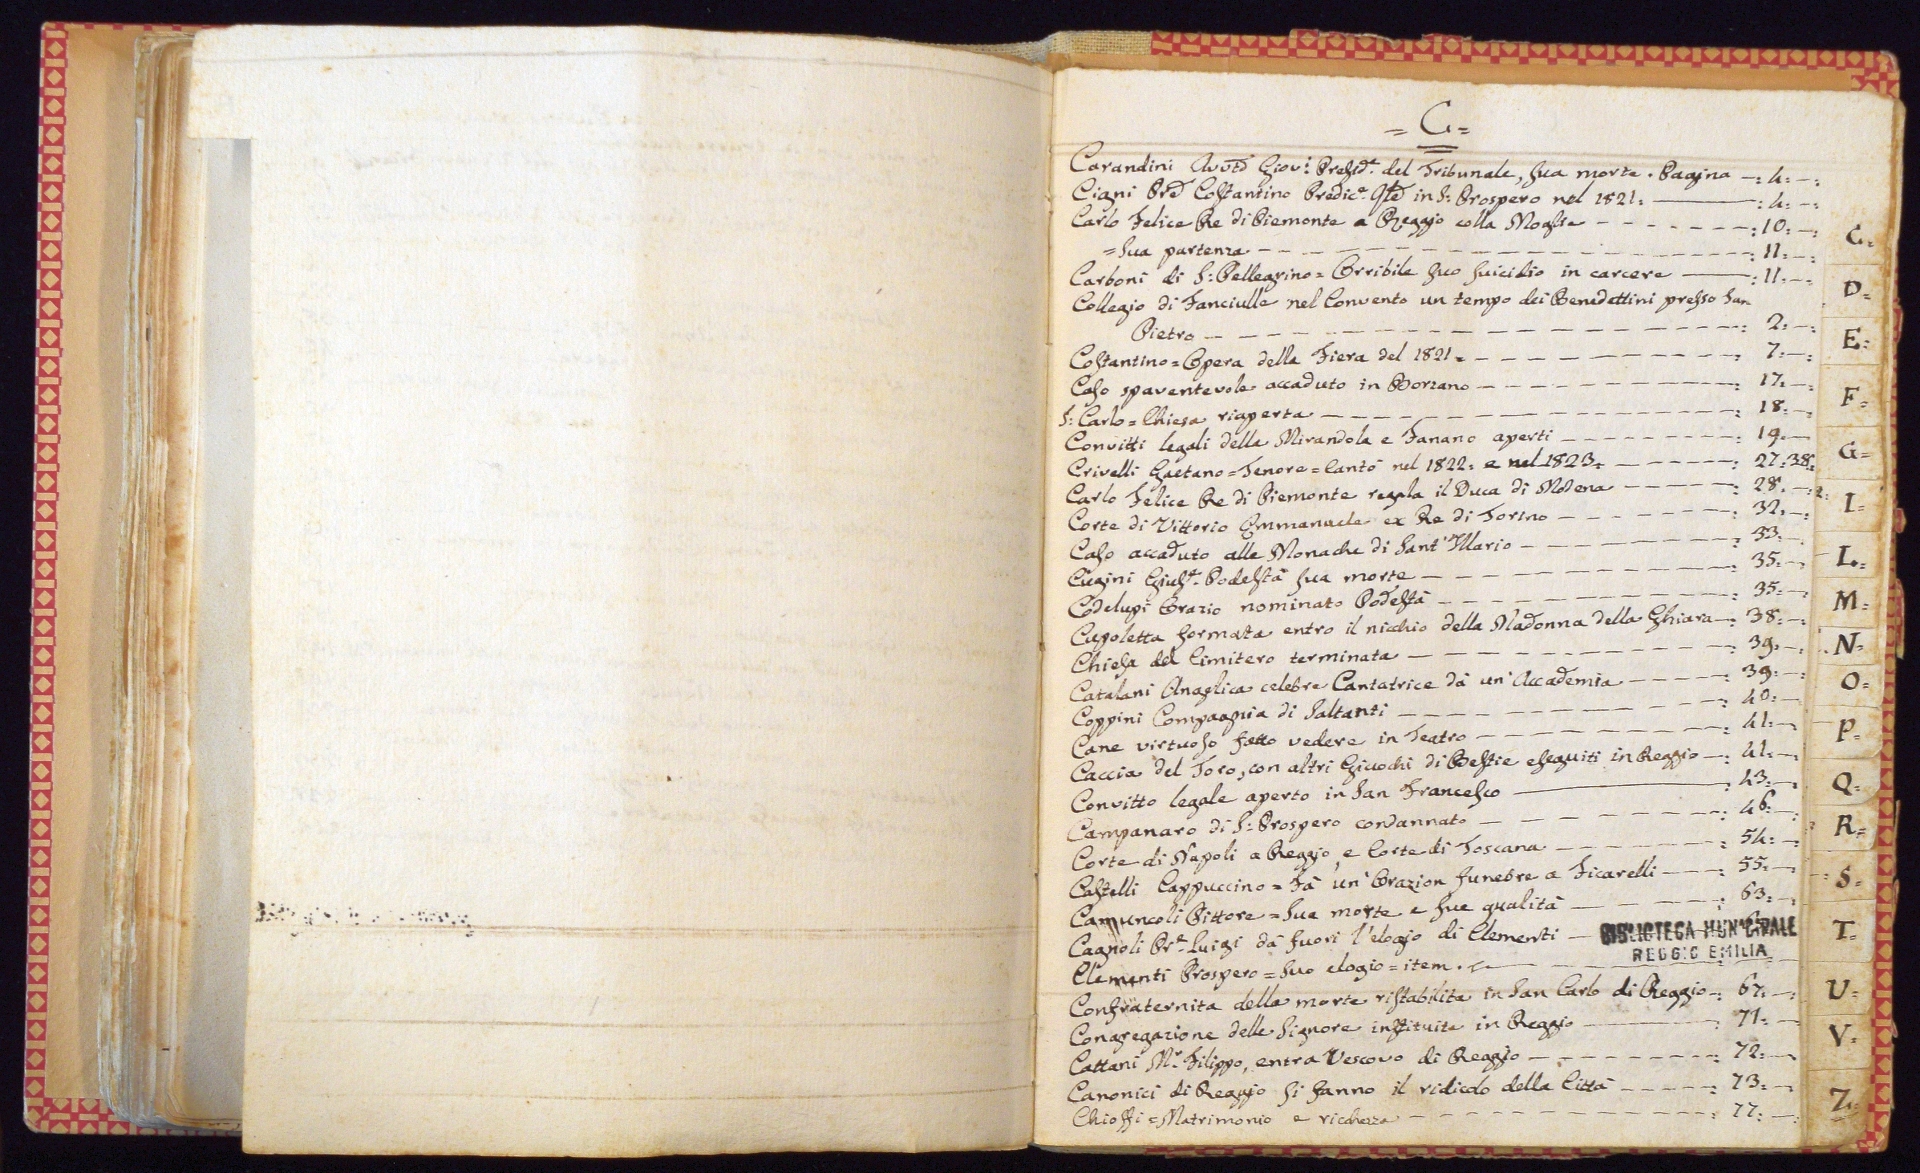 = C =
Carandini Avv.to Giov.i Presid.e del Tribunale, sua morte. Pagina —: 4: —:
Cigni Pre Costantino Predic.e Qle in S: Prospero nel 1821: ——: 4: —:
Carlo Felice Re di Piemonte a Reggio colla Moglie - - - - - -: 10: —:
= Sua partenza - - - - - -: 11: —:
Carboni di S: Pellegrino = Orribile suo suicidio in carcere ——: 11: —:
Collegio di Fanciulle nel Convento un tempo dei Benedettini presso San
Pietro - - - - - -: 2: —:
Costantino = Opera della Fiera del 1821 = - - - - - -: 7: —:
Caso spaventevole accaduto in Borzano - - - - - -: 17: —:
S: Carlo = Chiesa riaperta - - - - - -: 18: —:
Convitti legali della Mirandola e Fanano aperti - - - - - -: 19: —
Crivelli Gaetano = Tenore = Cantò nel 1822: e nel 1823: - - - -: 27: 38:
Carlo Felice Re di Piemonte regala il Duca di Modena - - - - -: 28: —:
Corte di Vittorio Emmanuele ex Re di Torino - - - - - -: 32: —:
Caso accaduto alle Monache di Sant' Illario - - - - - -: 33: —
Cugini Gius.e Podestà sua morte - - - - - -: 35: —:
Codelupi Orazio nominato Podestà - - - - - -: 35: —:
Cupoletta formata entro il nicchio della Madonna della Ghiara —: 38: —:
Chiesa del Cimitero terminata - - - - - -: 39: —:
Catalani Anglica celebre Cantatrice dà un' Accademia - - - - -: 39: —:
Coppini Compagnia di Saltanti - - - - - -: 40: —
Cane virtuoso fatto vedere in Teatro - - - - - -: 41: —
Caccia del Toro, con altri Giuochi di Bestie eseguiti in Reggio —: 41: —
Convitto legale aperto in San Francesco ——: 43: —
Campanaro di S: Prospero condannato - - - - - -: 46: —
Corte di Napoli a Reggio, e Corte di Toscana - - - - - -: 54: —
Castelli Cappuccino = Fà un' Orazion funebre a Ficarelli - - -: 55: —
Camuncoli Pittore = Sua morte e sue qualità - - - - - -: 63: —
Cagnoli Pr.e Luigi dà fuori l'elogio di Clementi —
Clementi Prospero = Suo elogio = item.
Confraternita della morte ristabilita in San Carlo di Reggio —: 67: —:
Congregazione delle Signore instituita in Reggio ——: 71: —
Cattani M.r Filippo, entra Vescovo di Reggio - - - - - -: 72: —
Canonici di Reggio si fanno il ridicolo della Città - - - - -: 73: —
Chiossi = Matrimonio e richezza - - - - - -: 77: —:
BIBLIOTECA MUNICIPALE
REGGIO EMILIA
C=
D=
E=
F=
G=
I=
L=
M=
N=
O=
P=
Q=
R=
S=
T=
U=
V=
Z=